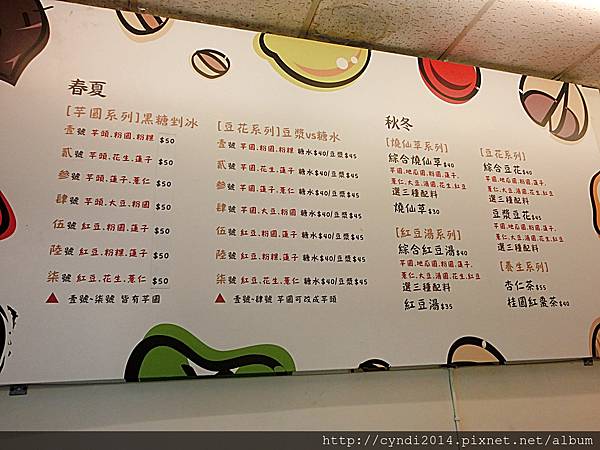 春夏
[芋圓系列]黑糖剉冰
壹號 芋頭.粉圓.粉粿 $50
貳號 芋頭.花生.蓮子 $50
參號 芋頭.蓮子.薏仁 $50
肆號 芋頭.大豆.粉圓 $50
伍號 紅豆.粉圓.蓮子 $50
陸號 紅豆.粉粿.蓮子 $50
柒號 紅豆.花生.薏仁 $50
▲ 壹號~柒號 皆有芋圓
[豆花系列]豆漿vs糖水
壹號 芋圓.粉圓.粉粿 糖水$40/豆漿$45
貳號 芋圓.花生.蓮子 糖水$40/豆漿$45
參號 芋圓.蓮子.薏仁 糖水$40/豆漿$45
肆號 芋圓.大豆.粉圓 糖水$40/豆漿$45
伍號 紅豆.粉圓.蓮子 糖水$40/豆漿$45
陸號 紅豆.粉粿.蓮子 糖水$40/豆漿$45
柒號 紅豆.花生.薏仁 糖水$40/豆漿$45
▲ 壹號~肆號 芋圓可改成芋頭
秋冬
[燒仙草系列]
綜合燒仙草$40
芋圓.地瓜圓.粉圓.蓮子.
薏仁.大豆.湯圓.花生.紅豆
選三種配料
燒仙草$30
[紅豆湯系列]
綜合紅豆湯$40
芋圓.地瓜圓.粉圓.蓮子.
薏仁.大豆.湯圓.花生.紅豆
選三種配料
紅豆湯$35
[豆花系列]
綜合豆花$40
芋圓.地瓜圓.粉圓.蓮子.
薏仁.大豆.湯圓.花生.紅豆
選三種配料
豆漿豆花$45
芋圓.地瓜圓.粉圓.蓮子.
薏仁.大豆.湯圓.花生.紅豆
選三種配料
[養生系列]
杏仁茶$35
桂圓紅棗茶$40
http://cyndi2014.pixnet.net/album